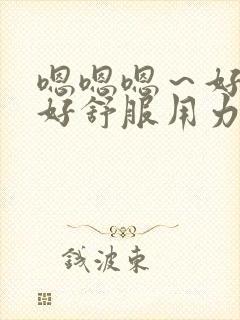 嗯嗯嗯~好
好舒服用力
钱波东